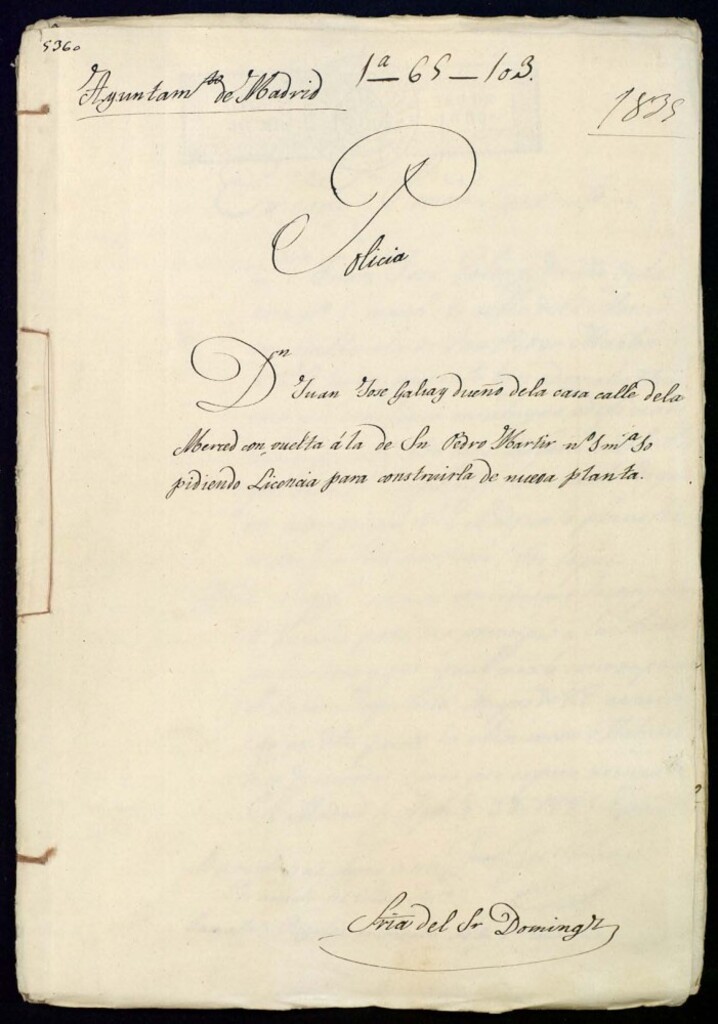 5360
Ayuntam.to de Madrid
1ª-65-103.
1835
Policia
Dn Juan Jose Galiay dueño dela casa calle dela
Merced con vuelta á la de Sn Pedro Martir nº 5 mª 50
pidiendo Licencia para construirla de nueva planta.
Sria del Sr Domingz